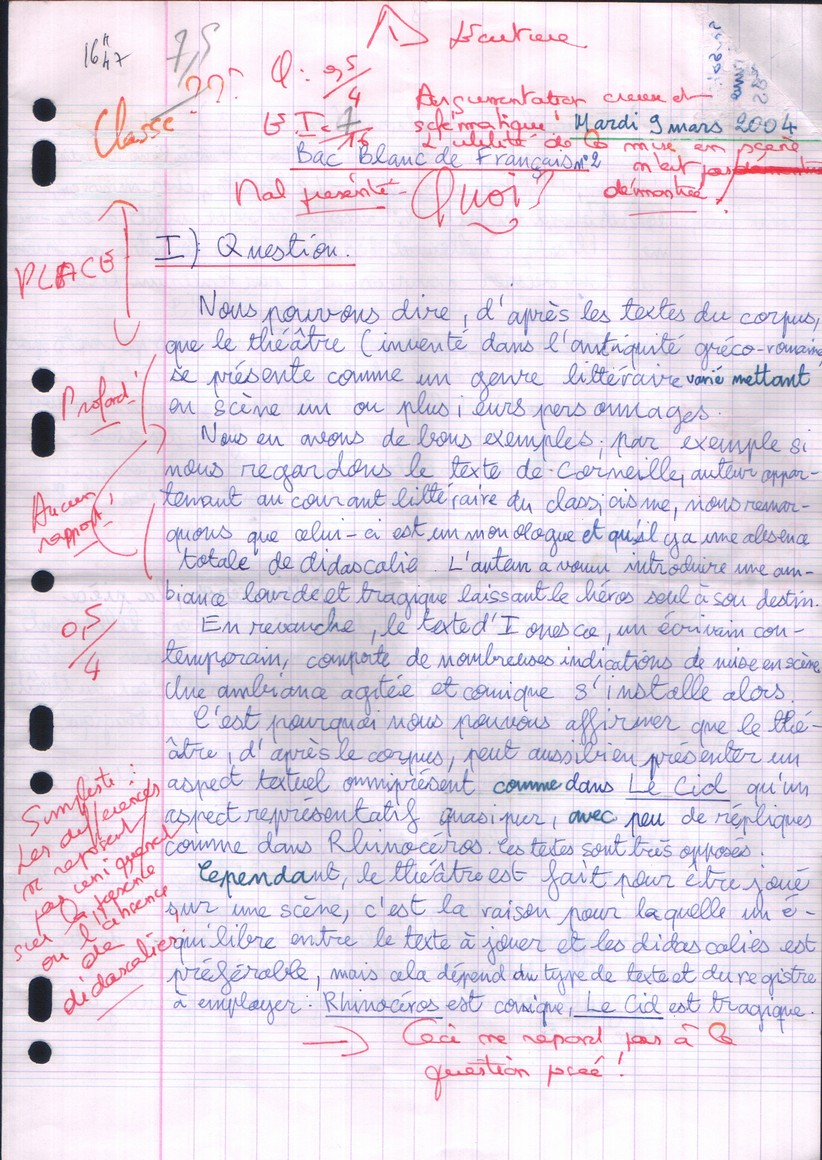 16h47
7,5
Écriture
Classe ???
Q : 0,5/4
Argumentation creuse et
schématique !
Mardi 9 mars 2004
E I : 7/16
L'utilité de la mise en scène
Bac Blanc de Français n°2
n'est pas
démontrée !
Mal présenté - Quoi ?
PLACE
I) Question.
Nous pouvons dire, d'après les textes du corpus,
que le théâtre (inventé dans l'antiquité gréco-romaine
se présente comme un genre littéraire varié mettant
en scène un ou plusieurs personnages.
Plafond !
Nous en avons de bons exemples, par exemple si
nous regardons le texte de Corneille, auteur appar-
tenant au courant littéraire du classicisme, nous remar-
quons que celui-ci est un monologue et qu'il y a une absence
totale de didascalie. L'auteur a voulu introduire une am-
biance lourde et tragique laissant le héros seul à son destin.
Aucun
rapport !
En revanche, le texte d'Ionesco, un écrivain con-
temporain, comporte de nombreuses indications de mise en scène
Une ambiance agitée et comique s'installe alors.
0,5/4
C'est pourquoi nous pouvons affirmer que le thé-
âtre, d'après le corpus, peut aussi bien présenter un
aspect textuel omniprésent comme dans Le Cid qu'un
aspect représentatif quasi pur, avec peu de répliques
comme dans Rhinocéros. les textes sont très opposés.
Cependant, le théâtre est fait pour être joué
sur une scène, c'est la raison pour laquelle un é-
quilibre entre le texte à jouer et les didascalies est
préférable, mais cela dépend du type de texte et du registre
à employer : Rhinocéros est comique, Le Cid est tragique.
Simpliste :
Les différences
ne reposent
pas uniquement
sur la présence
ou l'absence
de
didascalies !
→ Ceci ne répond pas à la
question posée !